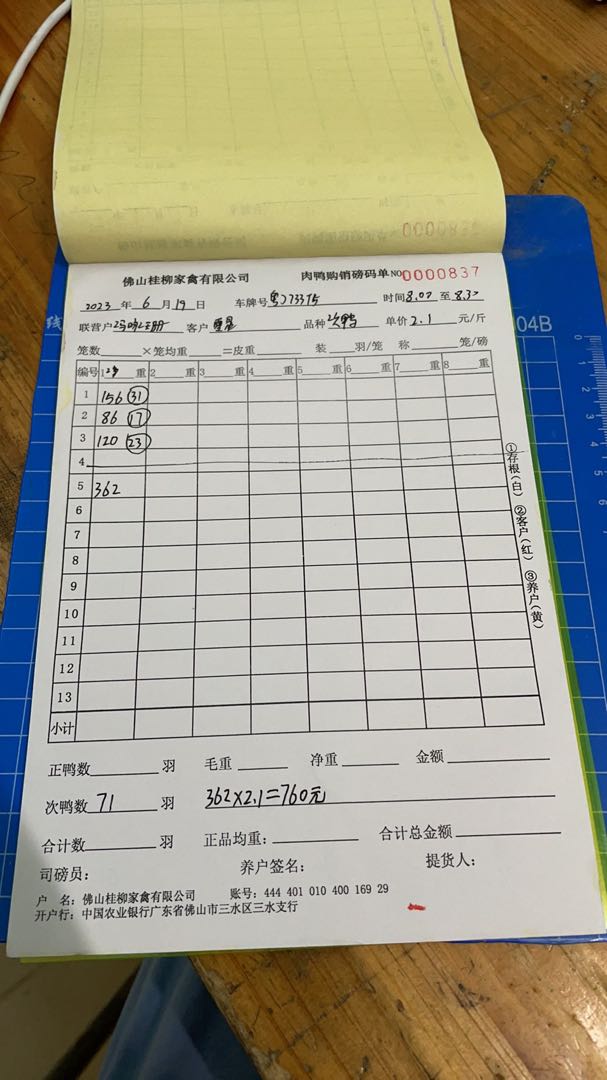 佛山桂柳家禽有限公司 肉鸭购销磅码单 NO 0000837
2023 年 6 月 19 日 车牌号 时间 8.00 至 8.30
联营户 客户 品种 次鸭 单价 2.1 元/斤
笼数 ×笼均重 =皮重 装 羽/笼 称 笼/磅
编号 1 重 2 重 3 重 4 重 5 重 6 重 7 重 8 重
1 156 31
2 86 17
3 120 23
4
5 362
6
7
8
9
10
11
12
13
小计
①存根(白) ②客户(红) ③养户(黄)
正鸭数 羽 毛重 净重 金额
次鸭数 71 羽 362×2.1=760元
合计数 羽 正品均重: 合计总金额
司磅员: 养户签名: 提货人:
户 名: 佛山桂柳家禽有限公司 账号: 444 401 010 400 169 29
开户行: 中国农业银行广东省佛山市三水区三水支行
04B